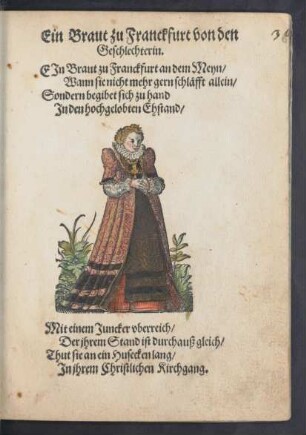 Ein Braut zu Franckfurt von den
Geschlechterin.
EIn Braut zu Franckfurt an dem Meyn/
Wann sie nicht mehr gern schläfft allein/
Sondern begibet sich zu hand
In den hochgelobten Ehstand/
Mit einem Juncker vberreich/
Der jhrem Stand ist durchauß gleich/
Thut sie an ein Husecken lang/
In jhrem Christlichen Kirchgang.